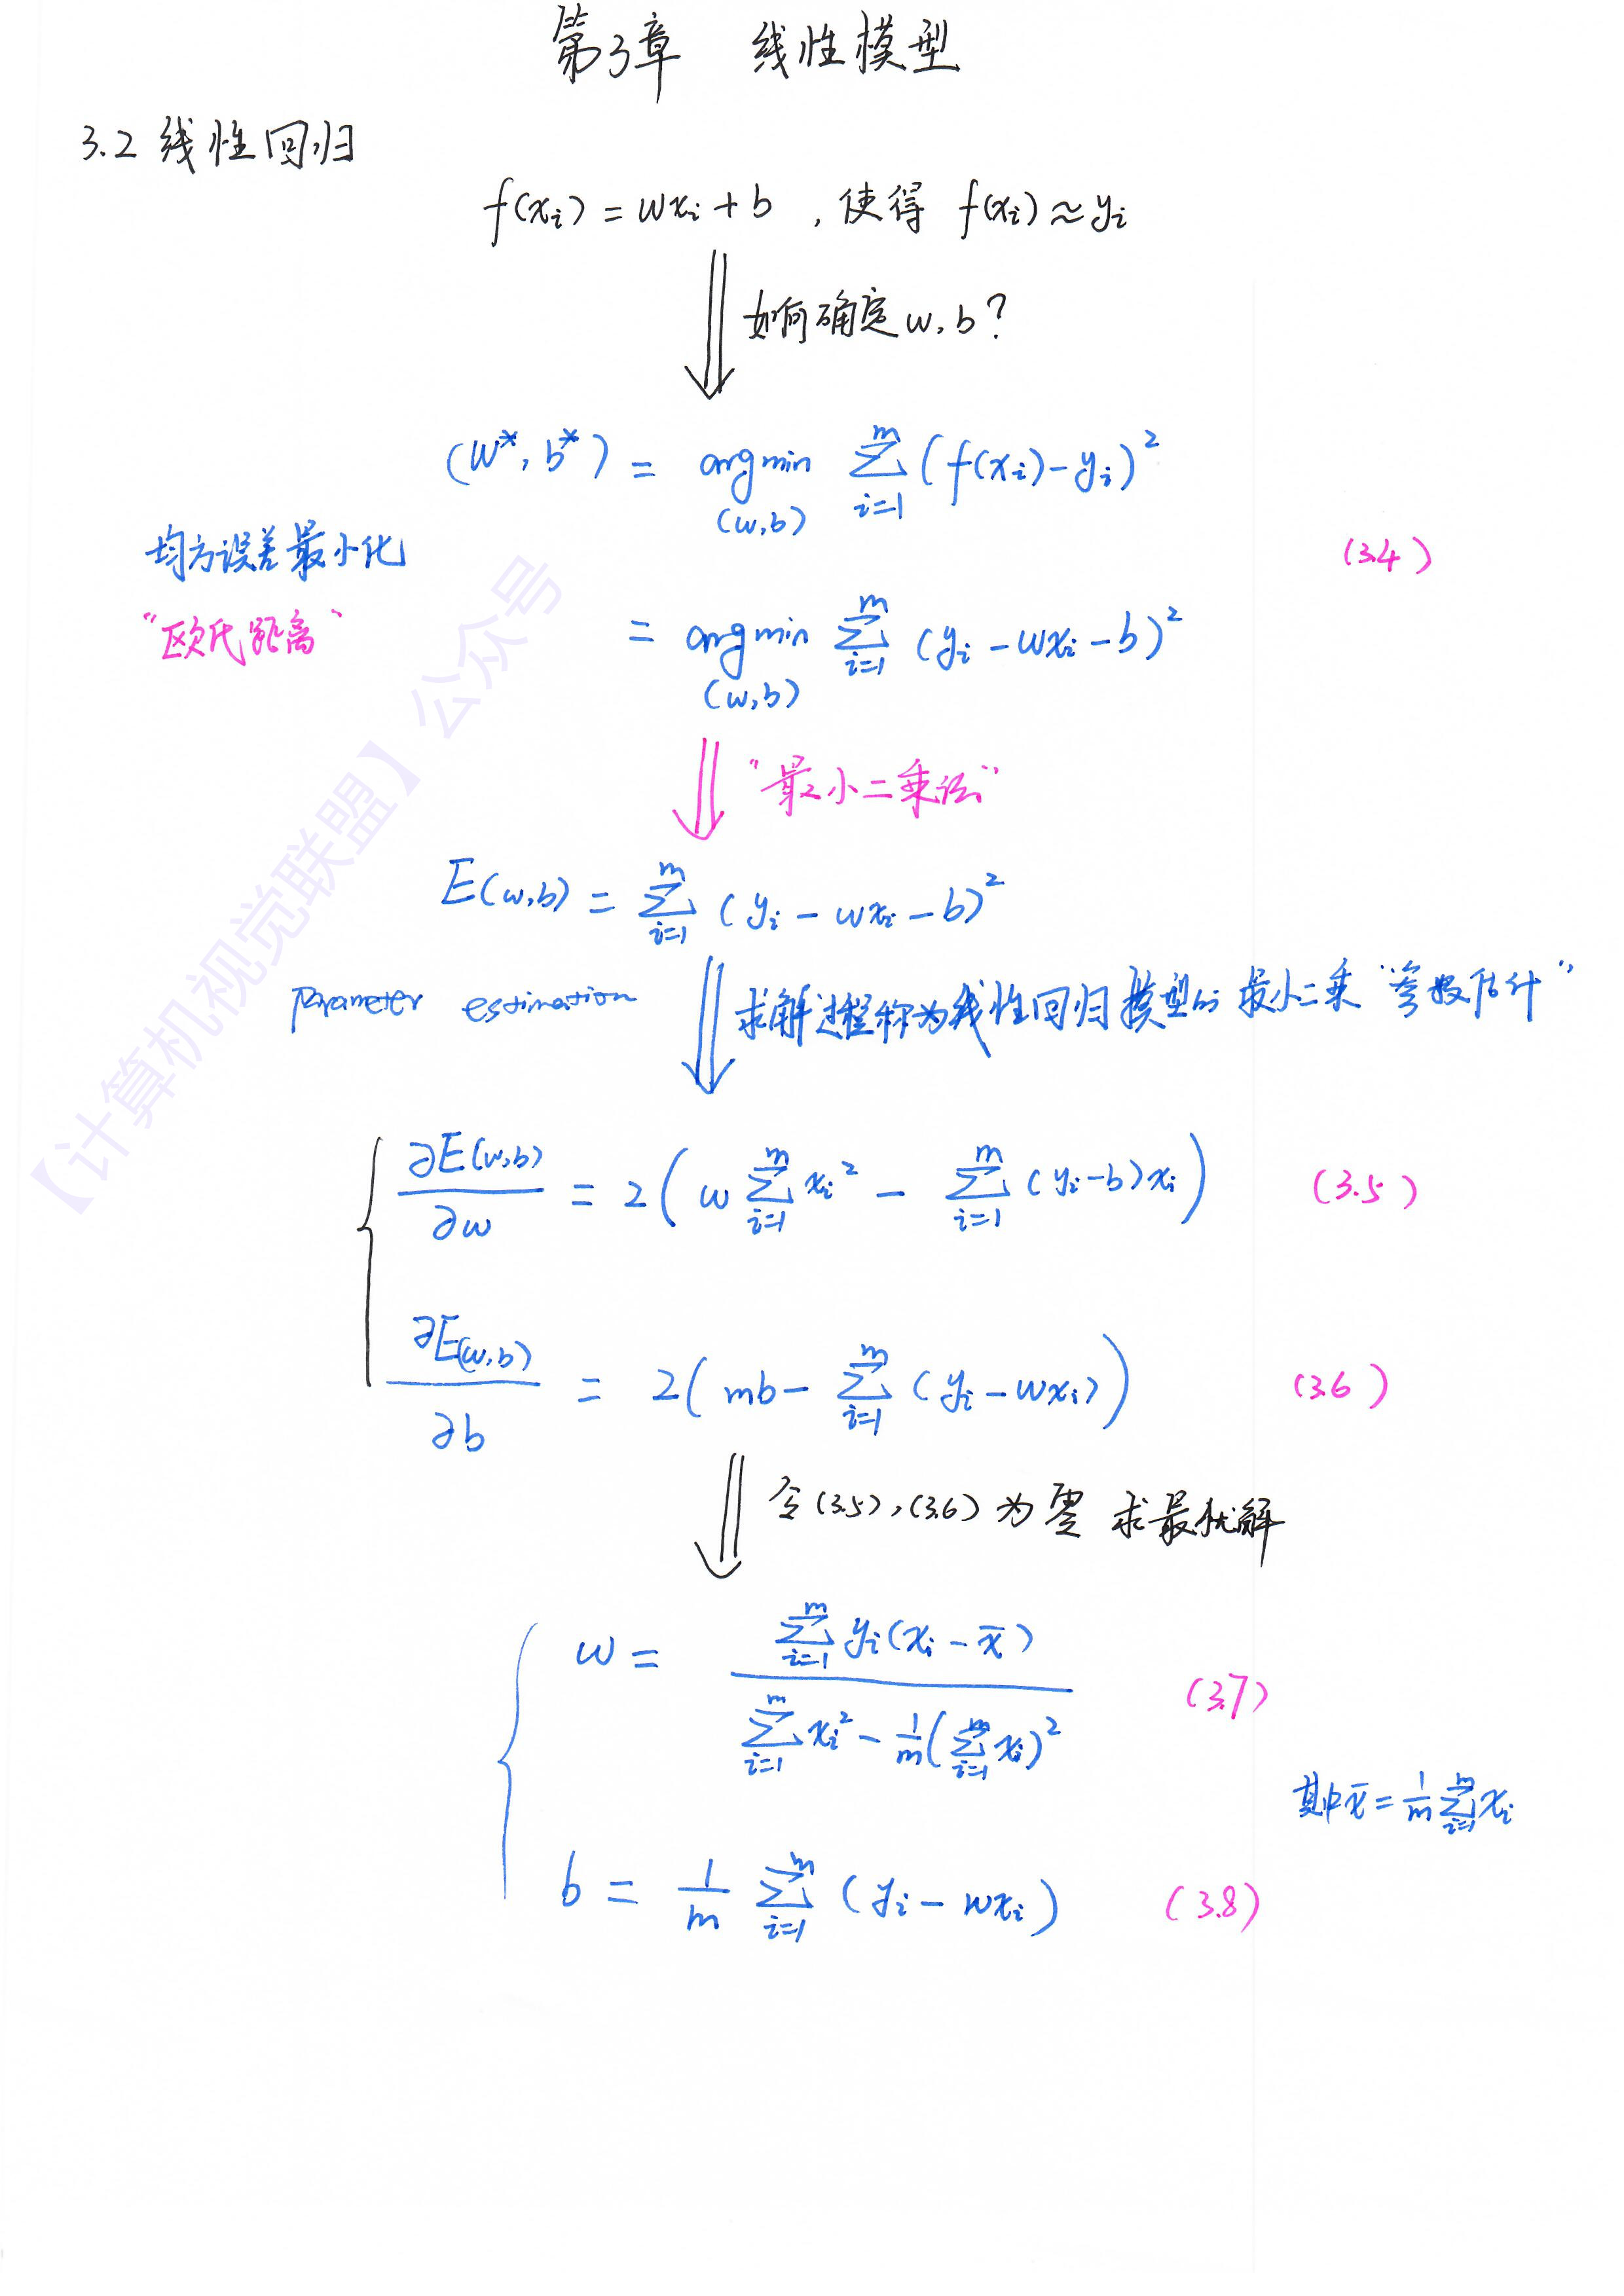 第3章 线性模型
3.2 线性回归
f(xᵢ) = wxᵢ + b , 使得 f(xᵢ) ≈ yᵢ
如何确定 w, b ?
(w*, b*) = arg min_(w,b) ∑_{i=1}^{m} (f(xᵢ) - yᵢ)²
均方误差最小化
(3.4)
“欧氏距离”
= arg min_(w,b) ∑_{i=1}^{m} (yᵢ - wxᵢ - b)²
“最小二乘法”
E(w,b) = ∑_{i=1}^{m} (yᵢ - wxᵢ - b)²
Parameter estimation 求解过程称为线性回归模型的最小二乘“参数估计”
∂E(w,b)/∂w = 2( w ∑_{i=1}^{m} xᵢ² - ∑_{i=1}^{m} (yᵢ - b)xᵢ ) (3.5)
∂E(w,b)/∂b = 2( mb - ∑_{i=1}^{m} (yᵢ - wxᵢ) ) (3.6)
令(3.5),(3.6)为零 求最优解
w = ∑_{i=1}^{m} yᵢ(xᵢ - x̄) / ( ∑_{i=1}^{m} xᵢ² - 1/m (∑_{i=1}^{m} xᵢ)² ) (3.7)
其中 x̄ = 1/m ∑_{i=1}^{m} xᵢ
b = 1/m ∑_{i=1}^{m} (yᵢ - wxᵢ) (3.8)
【计算机视觉联盟】公众号